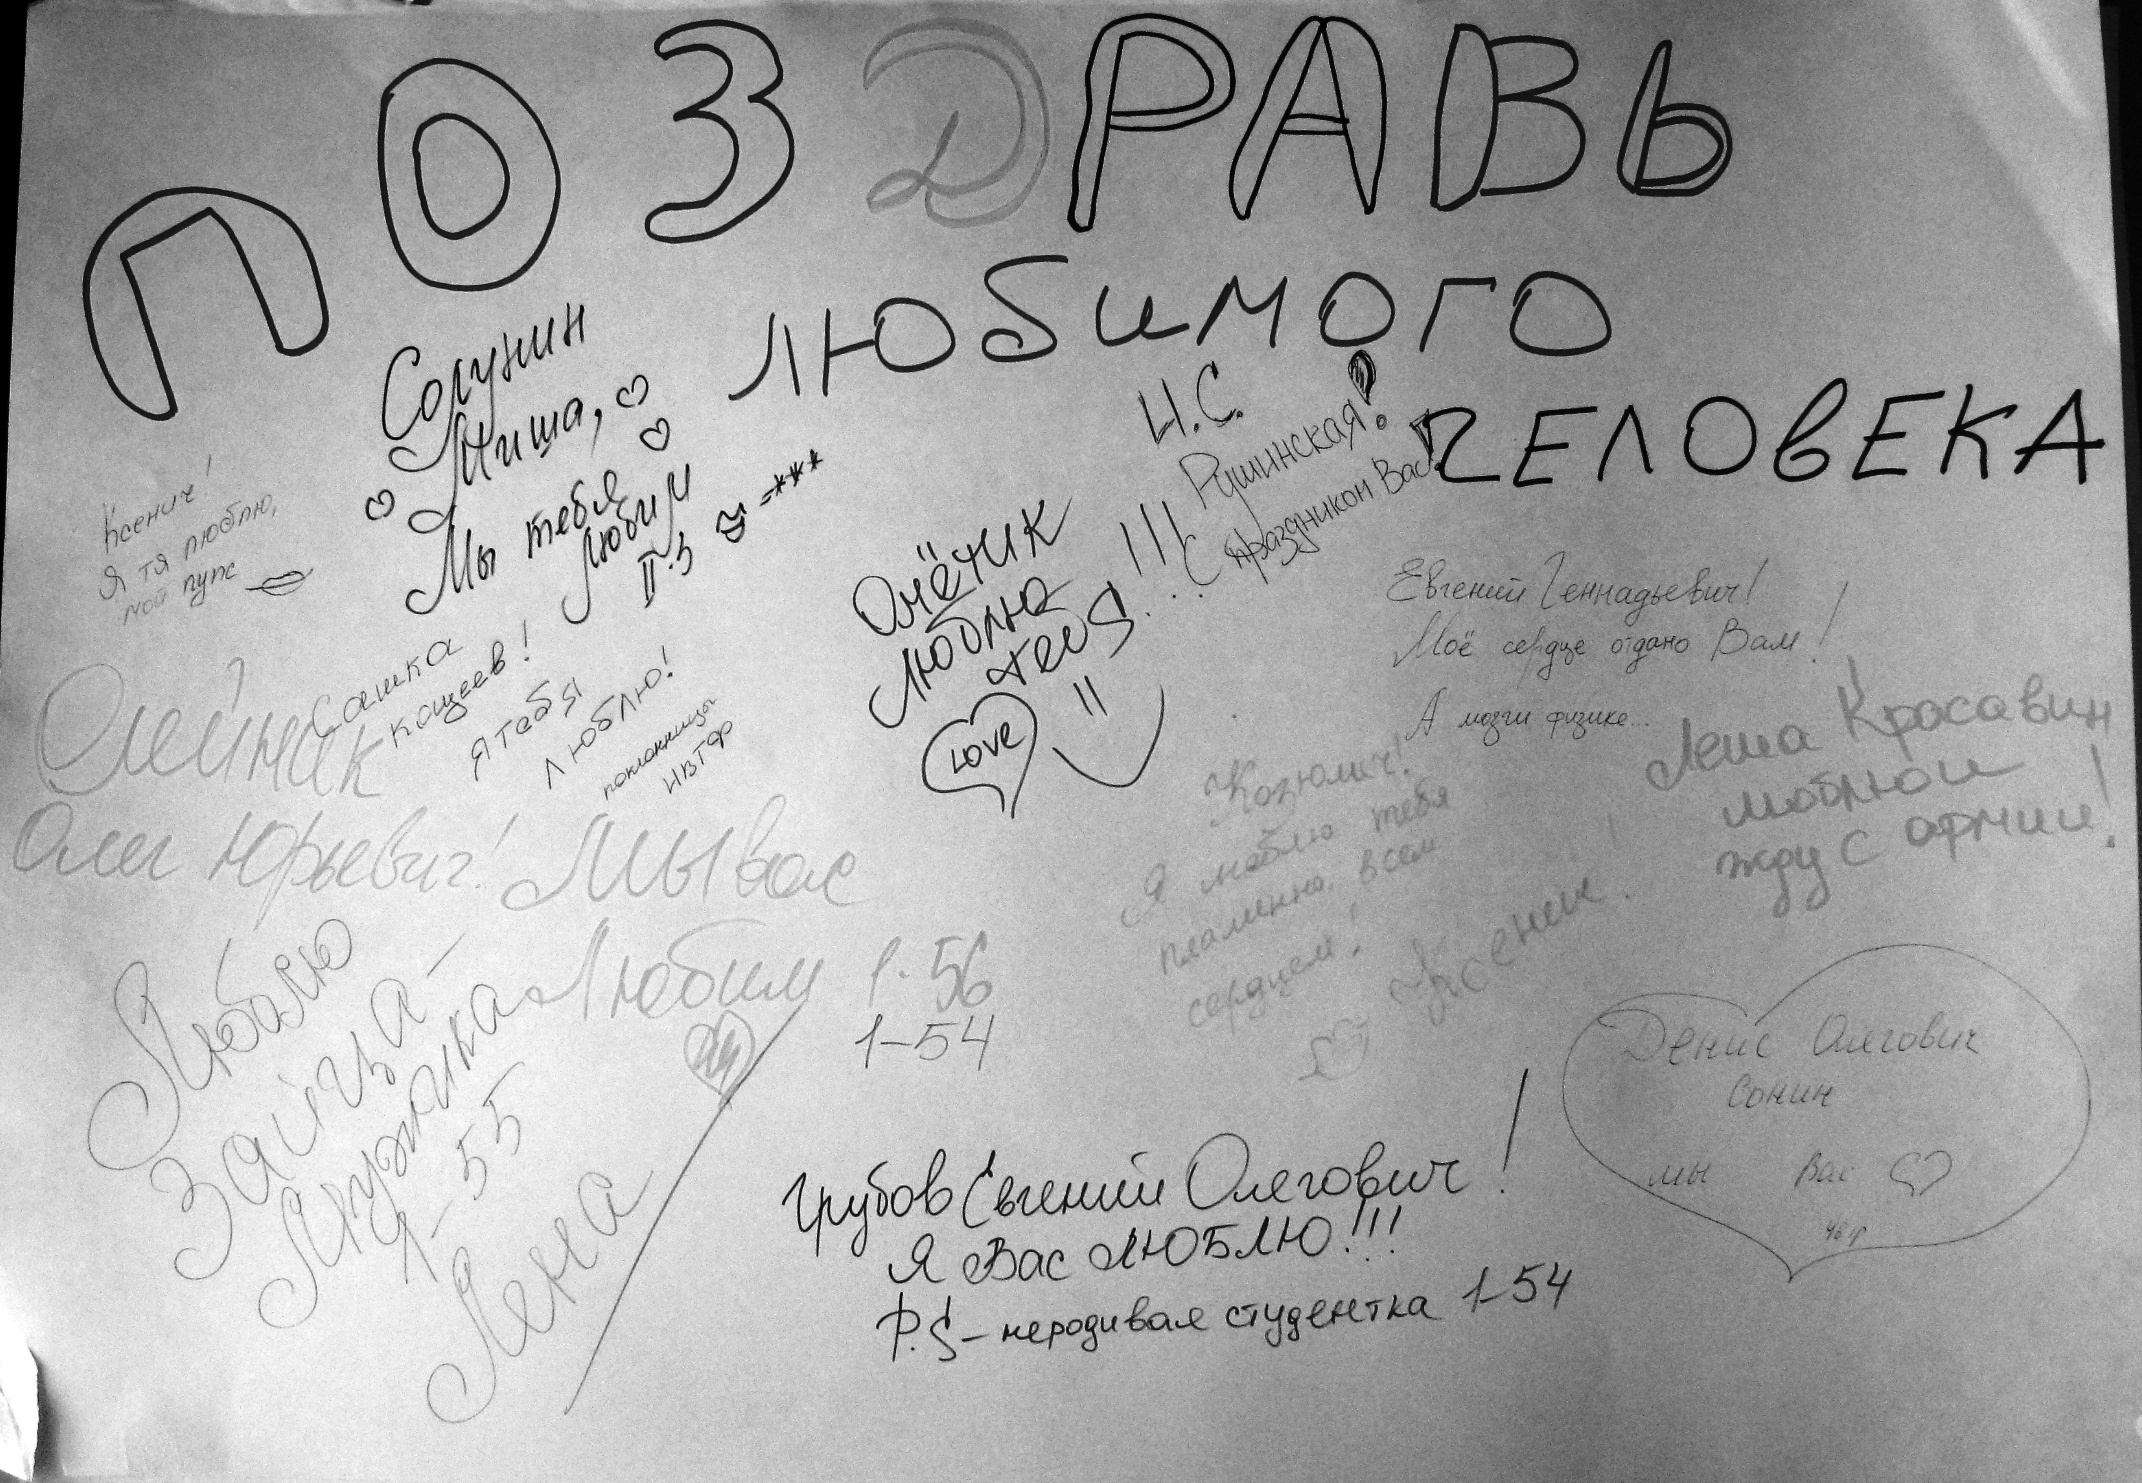 ПОЗДРАВЬ
ЛЮБИМОГО
ЧЕЛОВЕКА
Солунин
Миша,
Мы тебя
Любим
II-3 =***
Ксенич!
Я тя люблю,
мой пупс
Сашка
Кащеев!
Я тебя
Люблю!
поклонницы
Олейник
Олег Юрьевич! Мы вас
Любим 1-56
1-54
Люблю
Зайца-
Мужика
1-55
Лена
люблю
teBя!!!
Love
Н.С.
Рушинская!
С праздником Вас!
Евгений Геннадьевич!
Моё сердце отдано Вам!
А мозги физике...
Леша Красавин
люблю и
жду с армии!
Козюлич!
Я люблю тебя
пламенно, всем
сердцем!
Ксенич!
Денис Олегович
Сонин
мы Вас
Грубов Евгений Олегович!
Я Вас ЛЮБЛЮ!!!
P.S – неродивая студентка 1-54